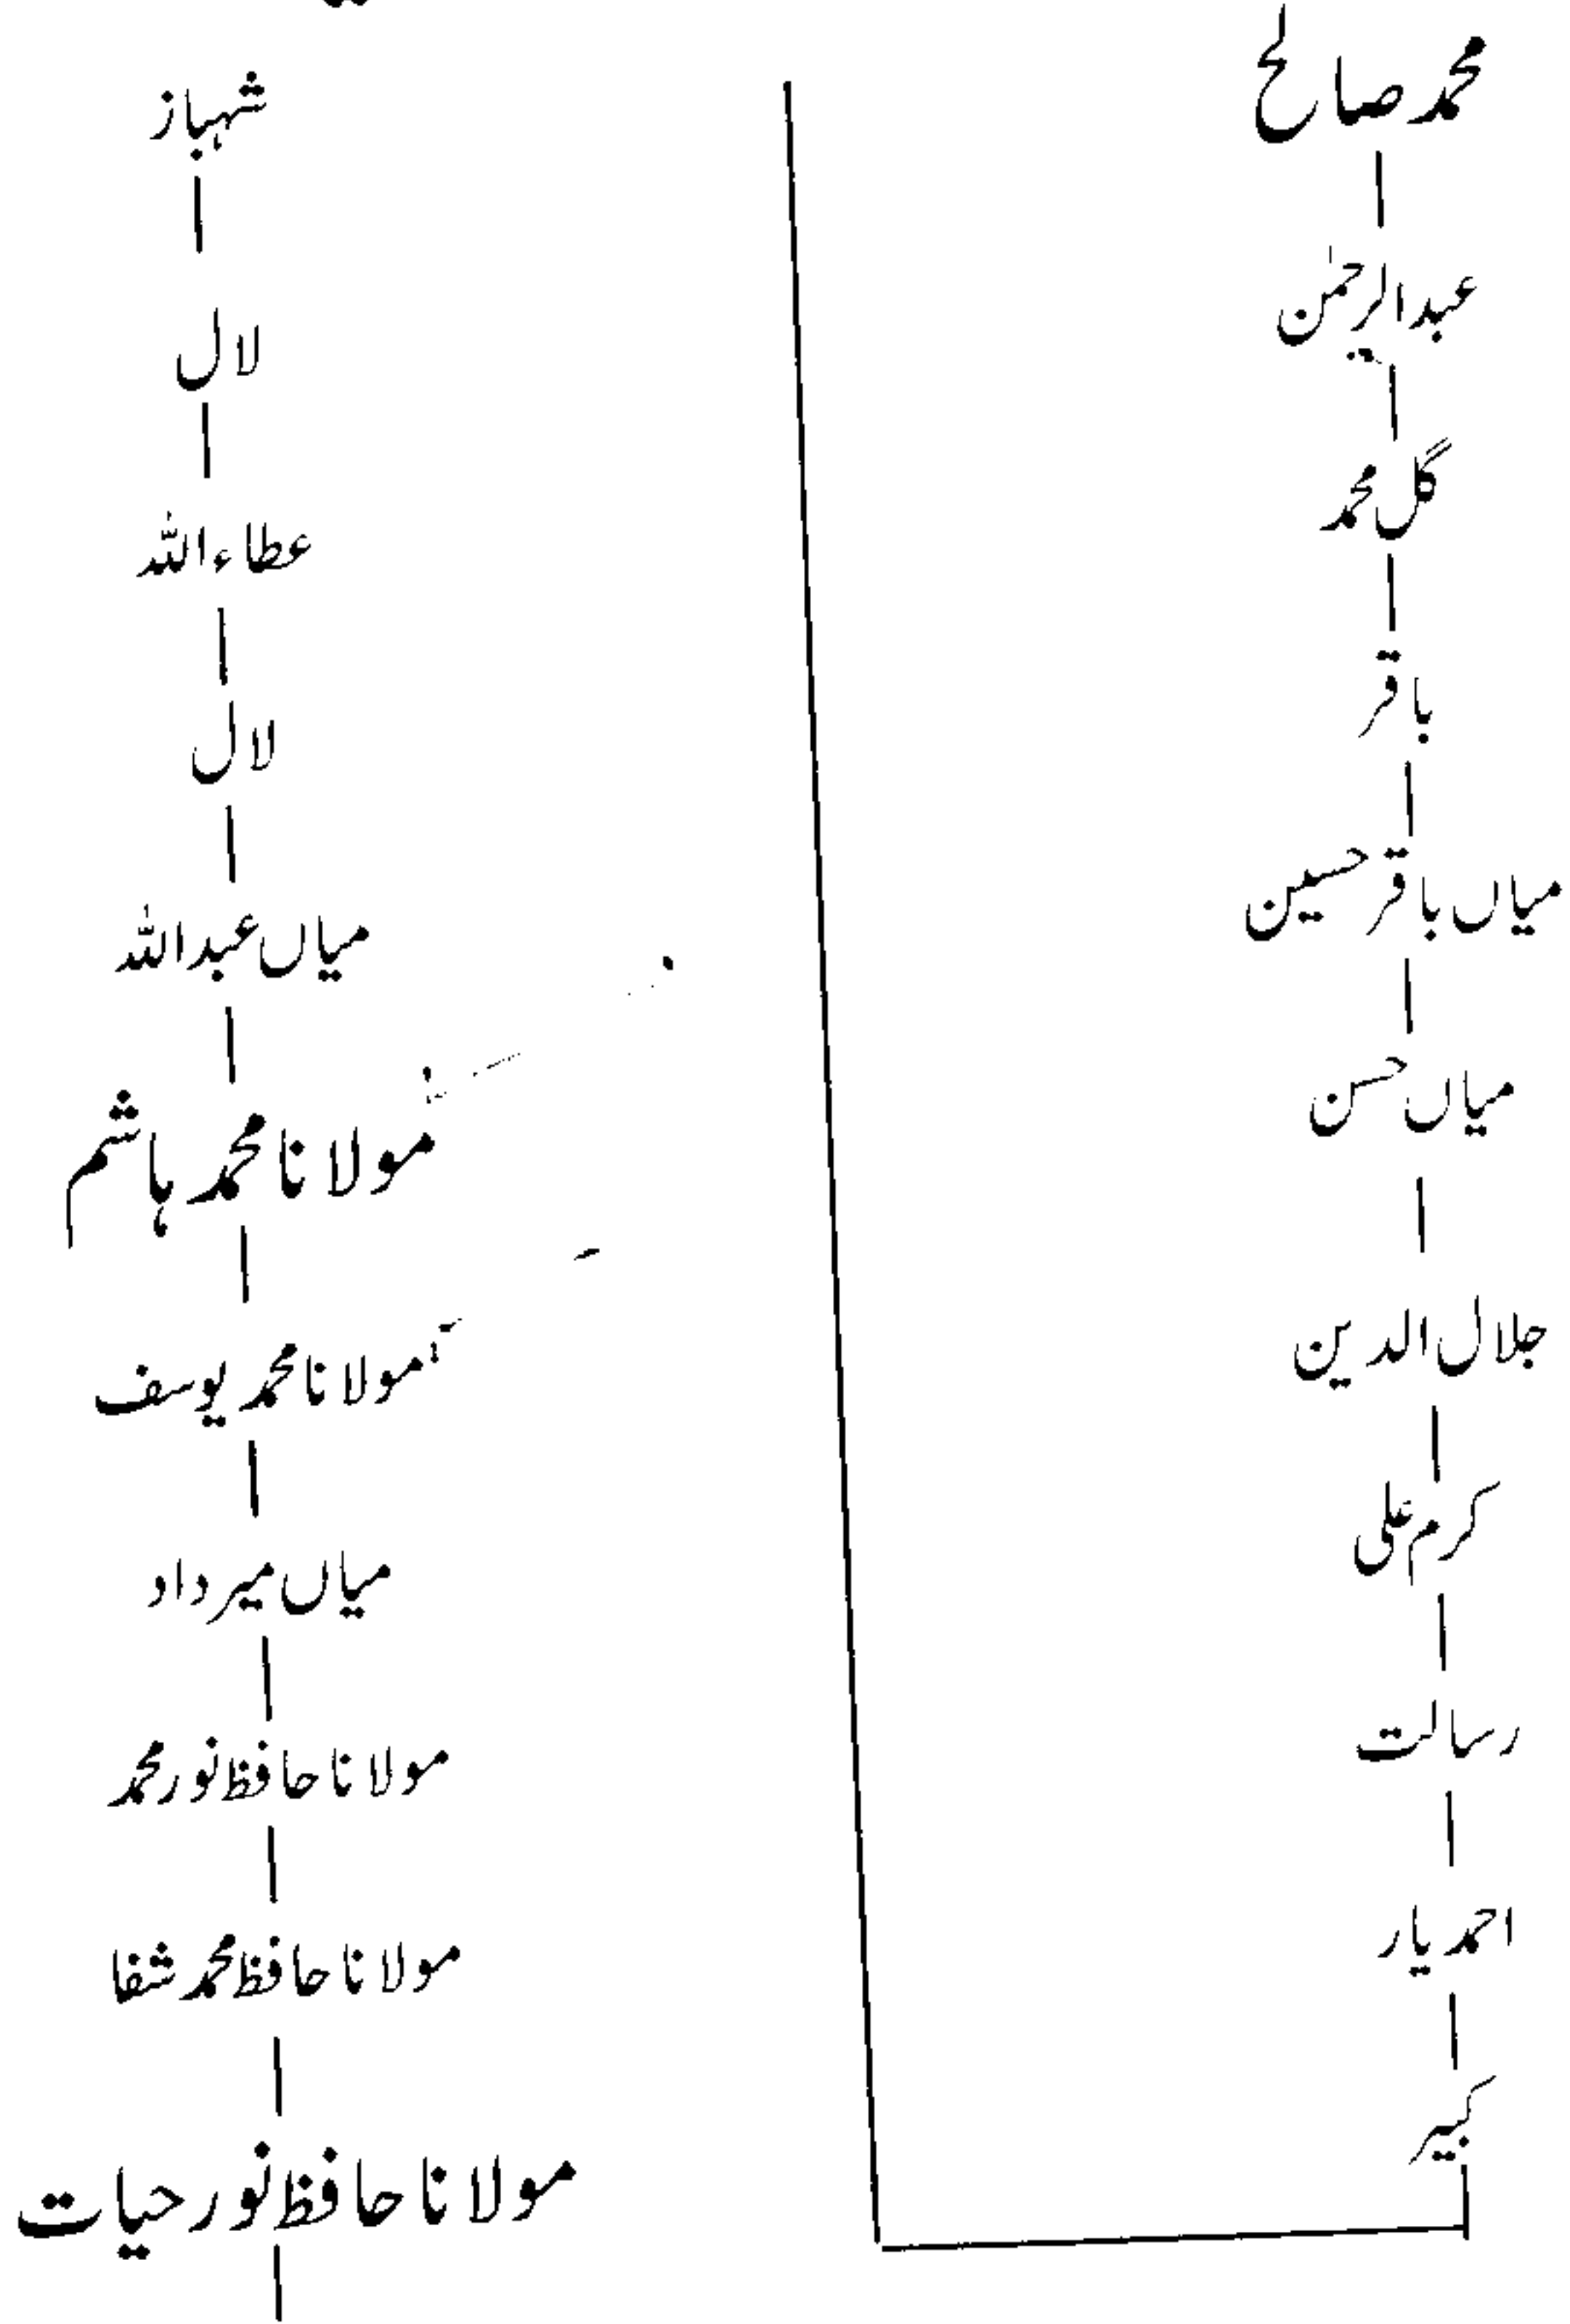 محمد صالح
عبدالرحمٰن
گل محمد
باقر
میاں باقر حسین
میاں حسن
جلال الدین
کرم علی
رسالت
احمد یار
کبیر
شہباز
لال
عطاء اللہ
لال
میاں عبداللہ
مولانا محمد ہاشم
مولانا محمد یوسف
میاں میر داد
مولانا حافظ نور محمد
مولانا حافظ محمد شفا
مولانا حافظ نور حیات